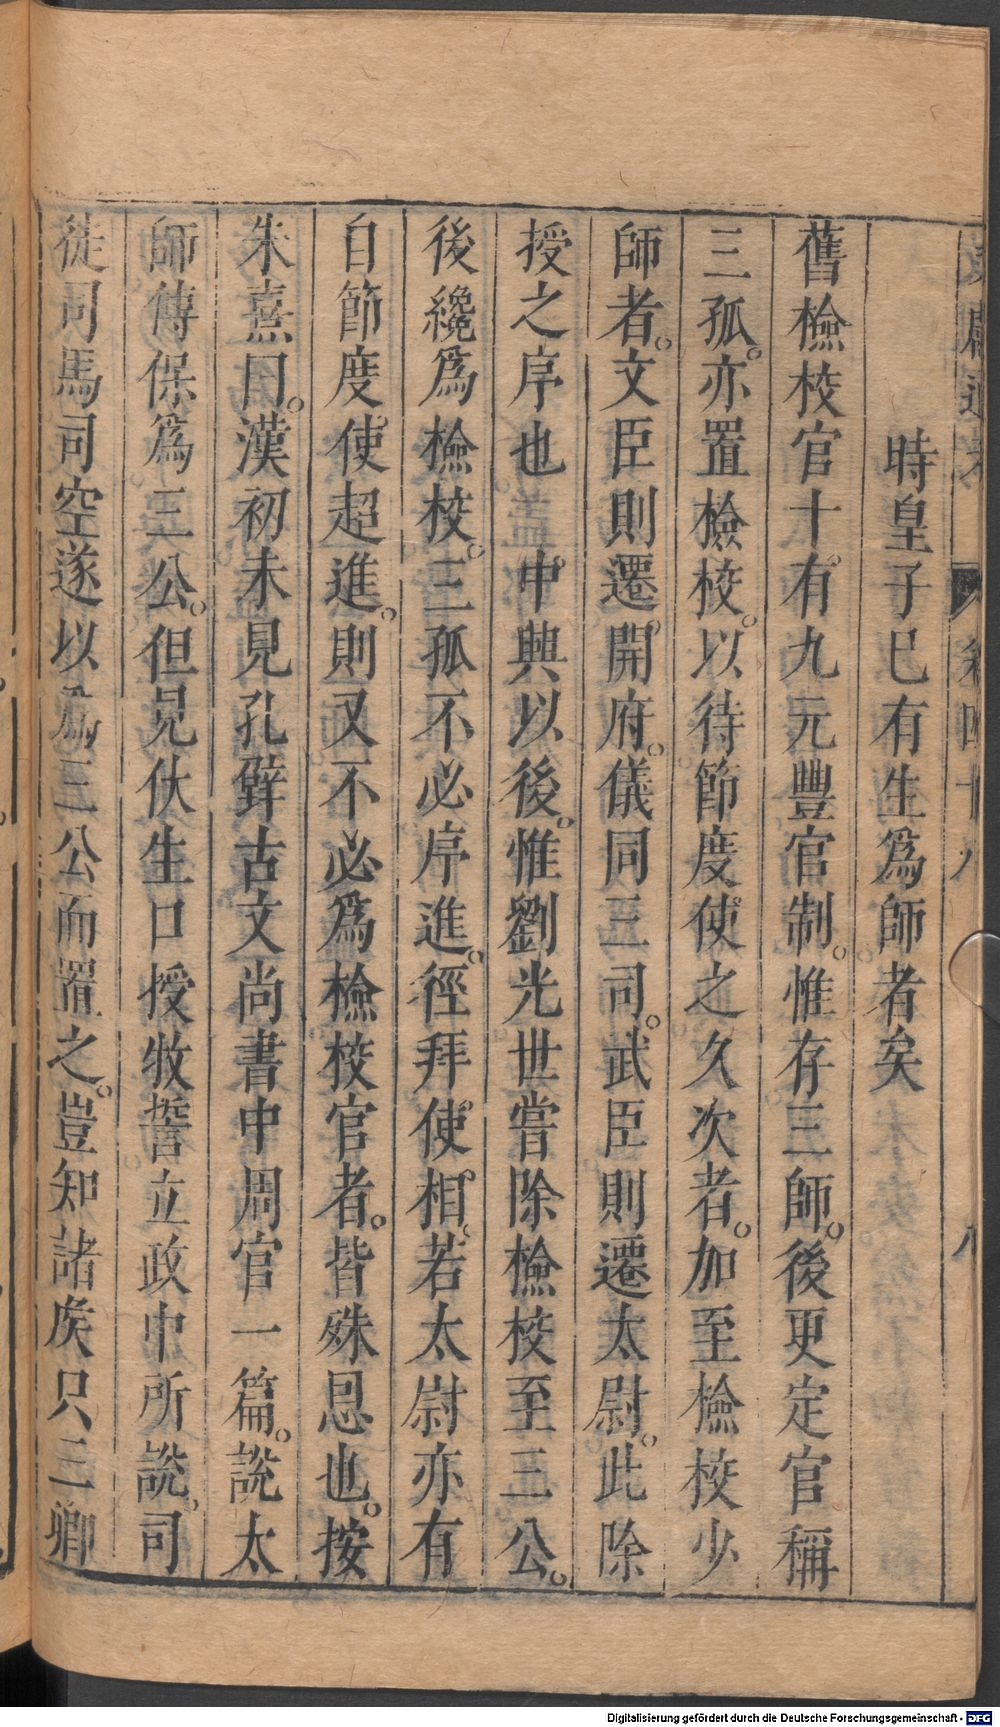 時皇子已有生爲師者矣
舊檢校官十有九元豐官制。惟存三師。後更定官稱
三孤。亦置檢校。以待節度使之久次者。加至檢校少
師者。文臣則遷開府。儀同三司。武臣則遷太尉。此除
授之序也。中興以後。惟劉光世嘗除檢校至三公。
後纔爲檢校。三孤不必序進。徑拜使相。若太尉亦有
自節度使超進。則又不必爲檢校官者。皆殊恩也。按
朱熹曰。漢初未見孔壁古文尚書中周官一篇。說太
師傅保爲三公。但見伏生口授牧誓立政中所說。司
徒司馬司空遂以爲三公而置之。豈知諸侯只三卿
Digitalisierung gefördert durch die Deutsche Forschungsgemeinschaft - DFG